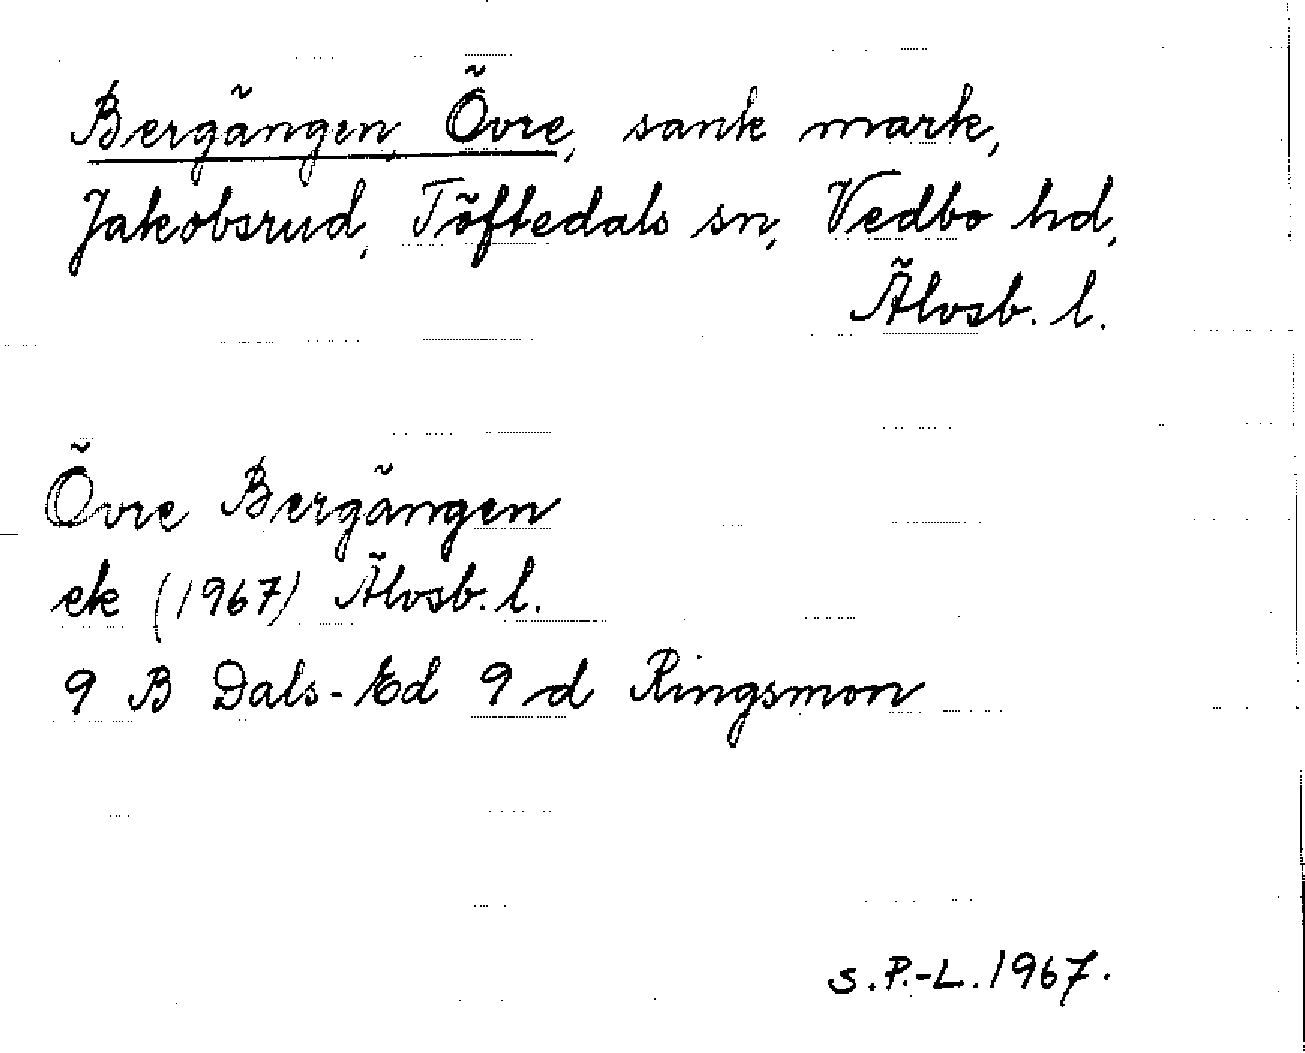 Bergängen, Övre, sank mark,
Jakobsrud, Töftedals sn, Vedbo hd,
Älvsb. l.
Övre Bergängen
ek (1967) Älvsb. l.
9 B Dals-Ed 9 d Ringsmon
S.P.-L. 1967.